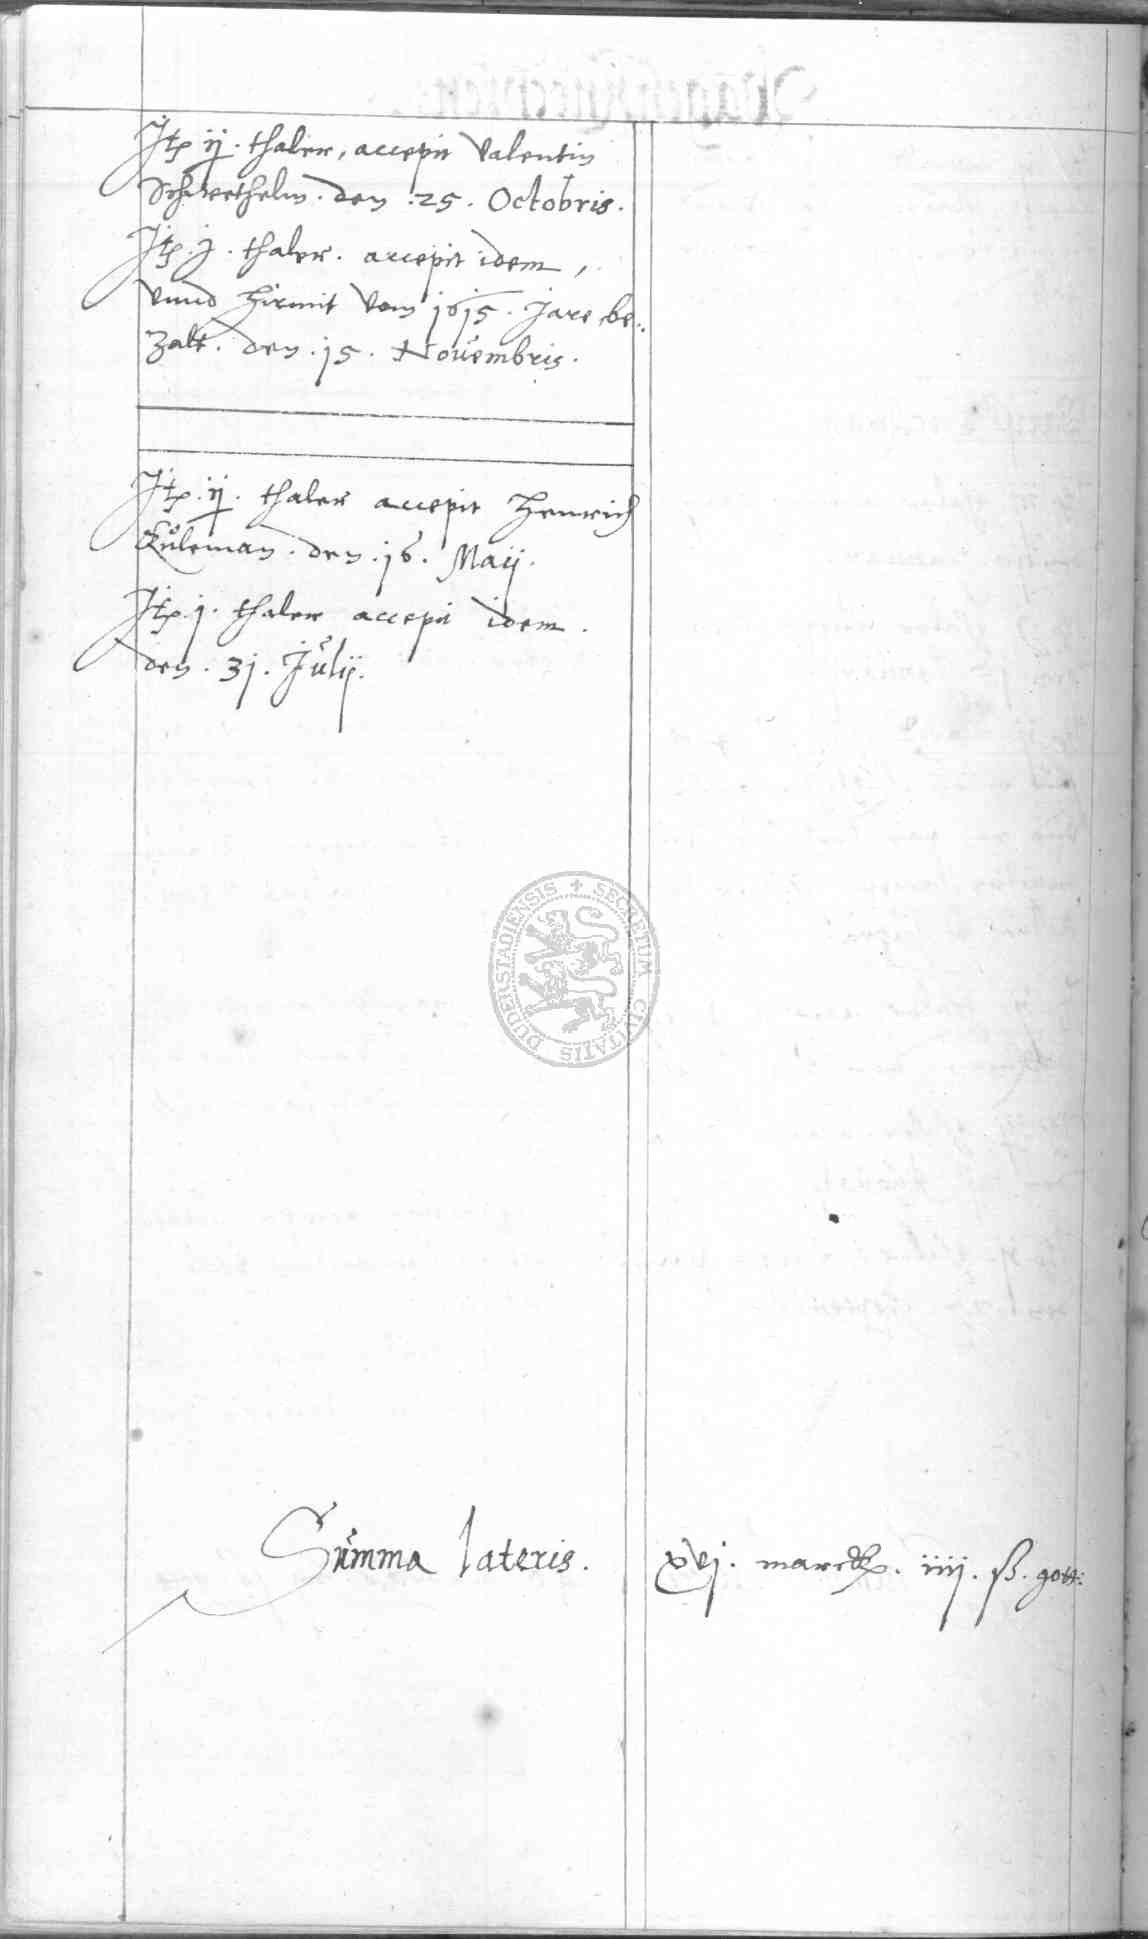 Itp. ij. thaler, accepit Valentin
Schwethelm. den .25. Octobris.
Itp. j. thaler. accepit idem,
vnnd hirmit vom 1615. Jare be:
zalt. den .15. Nouembris.
Itp. ij. thaler accepit Henrich
Kuleman. den .16. Maij.
Itp. j. thaler accepit idem.
den. 31. Julij.
DUDERSTADIENSIS + SECRETUM CIVITATIS
Summa lateris. xvj. marck. iiij. ß. gott: